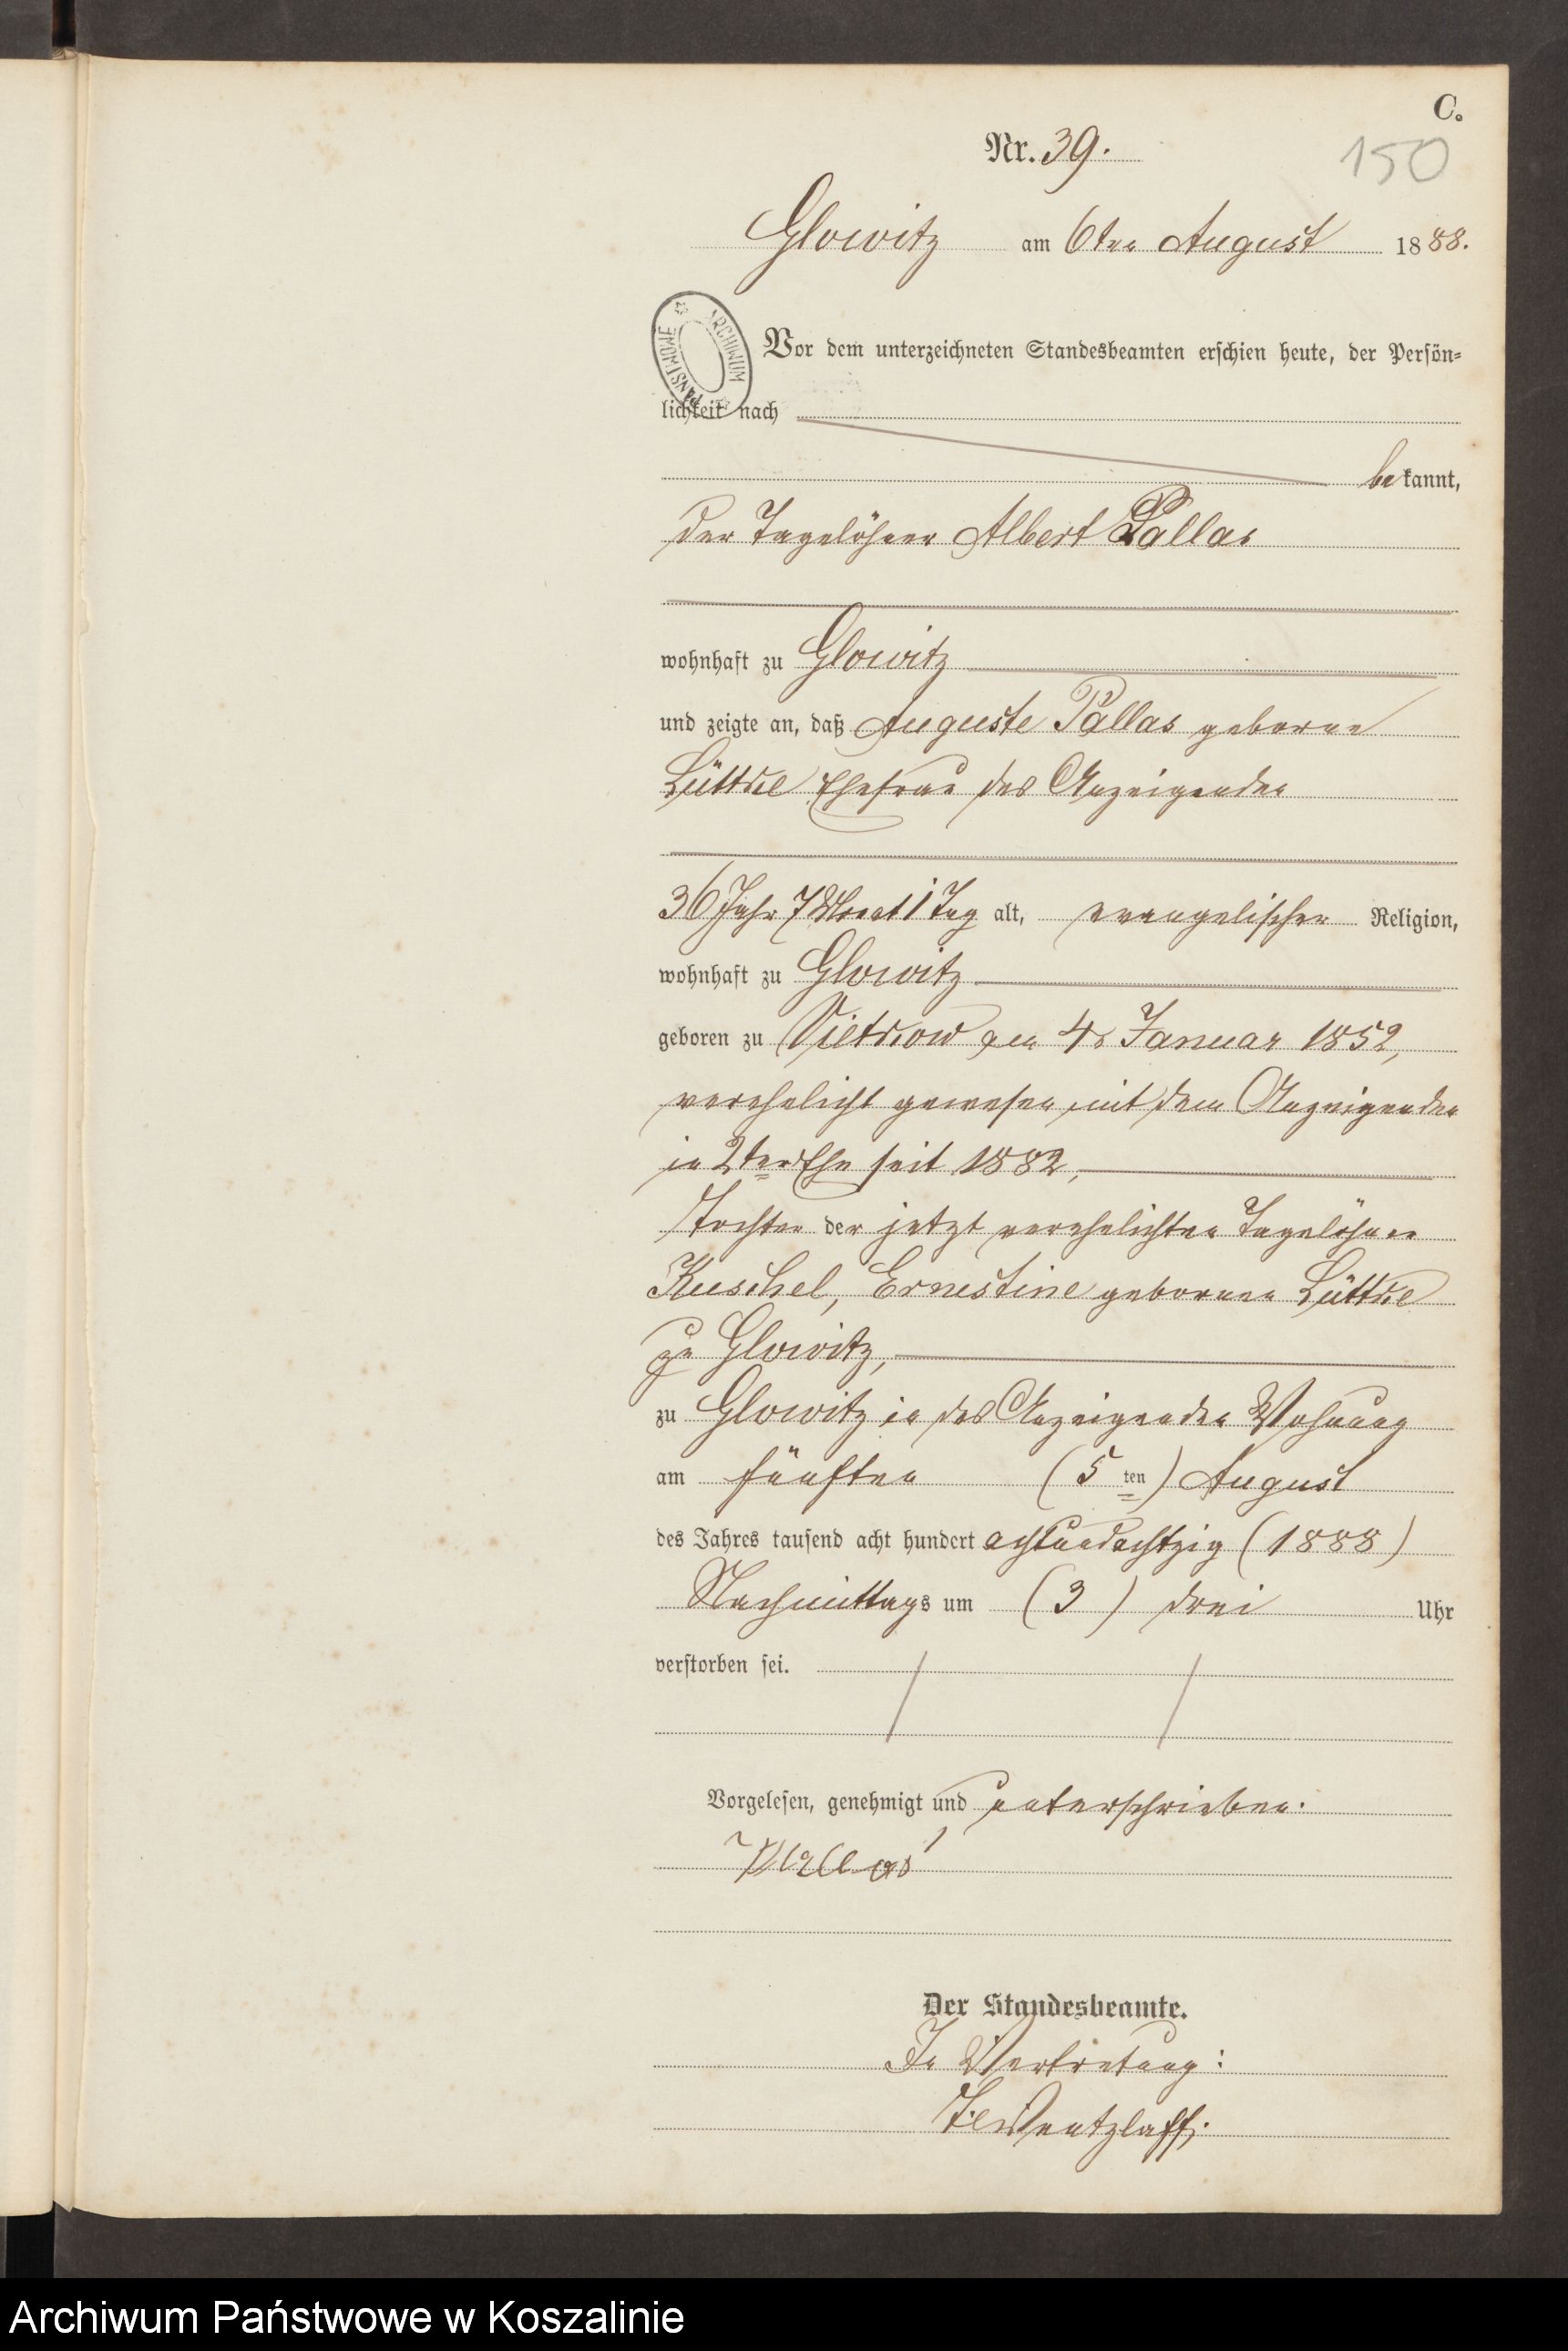 C.
Nr. 39.
150
Glowitz am 6ten August 1888.
ARCHIWUM PAŃSTWOWE
Vor dem unterzeichneten Standesbeamten erschien heute, der Persön-
lichkeit nach
bekannt,
der Tagelöhner Albert Pallas
wohnhaft zu Glowitz
und zeigte an, daß Auguste Pallas geborne
Lüttke Ehefrau des Anzeigenden
36 Jahr 7 Monat 1 Tag alt, evangelischer Religion,
wohnhaft zu Glowitz
geboren zu Vietkow am 4 Januar 1852,
verehelicht gewesen mit dem Anzeigenden
in 2ter Ehe seit 1882,
Tochter der jetzt verehelichten Tagelöhner
Kuschel, Ernestine gebornen Lüttke
zu Glowitz,
zu Glowitz in des Anzeigenden Wohnung
am fünften (5 ten) August
des Jahres tausend acht hundert achtundachtzig (1888)
Nachmittags um (3) drei Uhr
verstorben sei.
Vorgelesen, genehmigt und unterschrieben.
Pallas
Der Standesbeamte.
In Vertretung:
Wentzlaff.
Archiwum Państwowe w Koszalinie